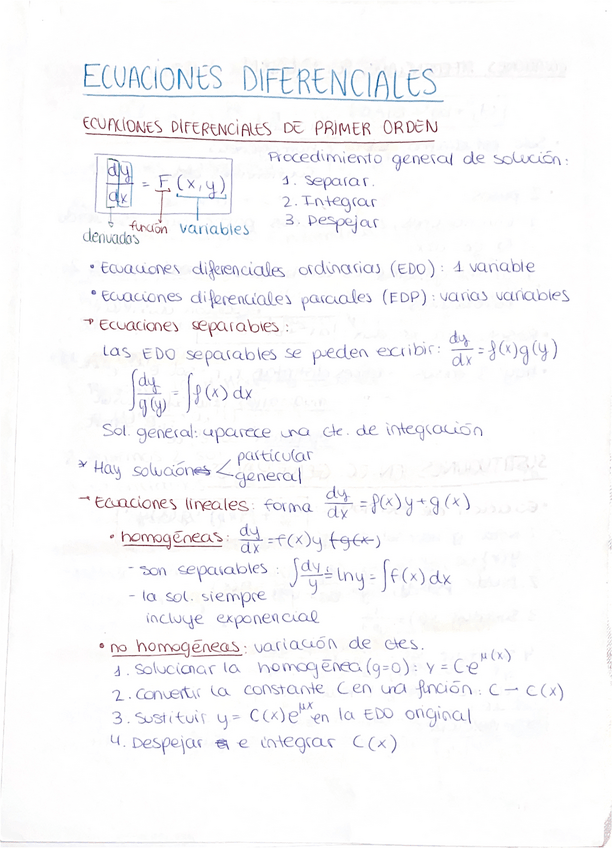 ECUACIONES DIFERENCIALES
ECUACIONES DIFERENCIALES DE PRIMER ORDEN
dy/dx = F (x,y)
derivadas función variables
Procedimiento general de solución:
1. Separar.
2. Integrar
3. Despejar
• Ecuaciones diferenciales ordinarias (EDO): 1 variable
• Ecuaciones diferenciales parciales (EDP): varias variables
→ Ecuaciones separables:
Las EDO separables se pueden escribir: dy/dx = f(x)g(y)
∫ dy/g(y) = ∫ f(x) dx
Sol. general: aparece una cte. de integración
* Hay soluciones < particular
general
→ Ecuaciones lineales: forma dy/dx = f(x)y + g(x)
• homogéneas: dy/dx = f(x)y + g(x)
- son separables: ∫ dy/y = ln y = ∫ f(x)dx
- la sol. siempre
incluye exponencial
• no homogéneas: variación de ctes.
1. Solucionar la homogénea (g=0): y = Ce^μ(x)
2. Convertir la constante C en una función: C – C(x)
3. Sustituir y = C(x)e^μx en la EDO original
4. Despejar e integrar C(x)